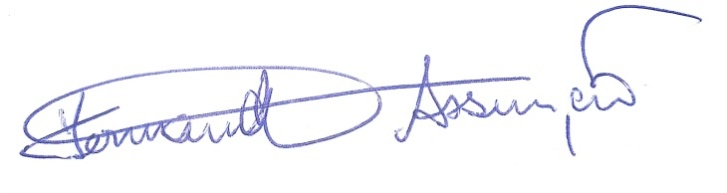 Fernando Assunção